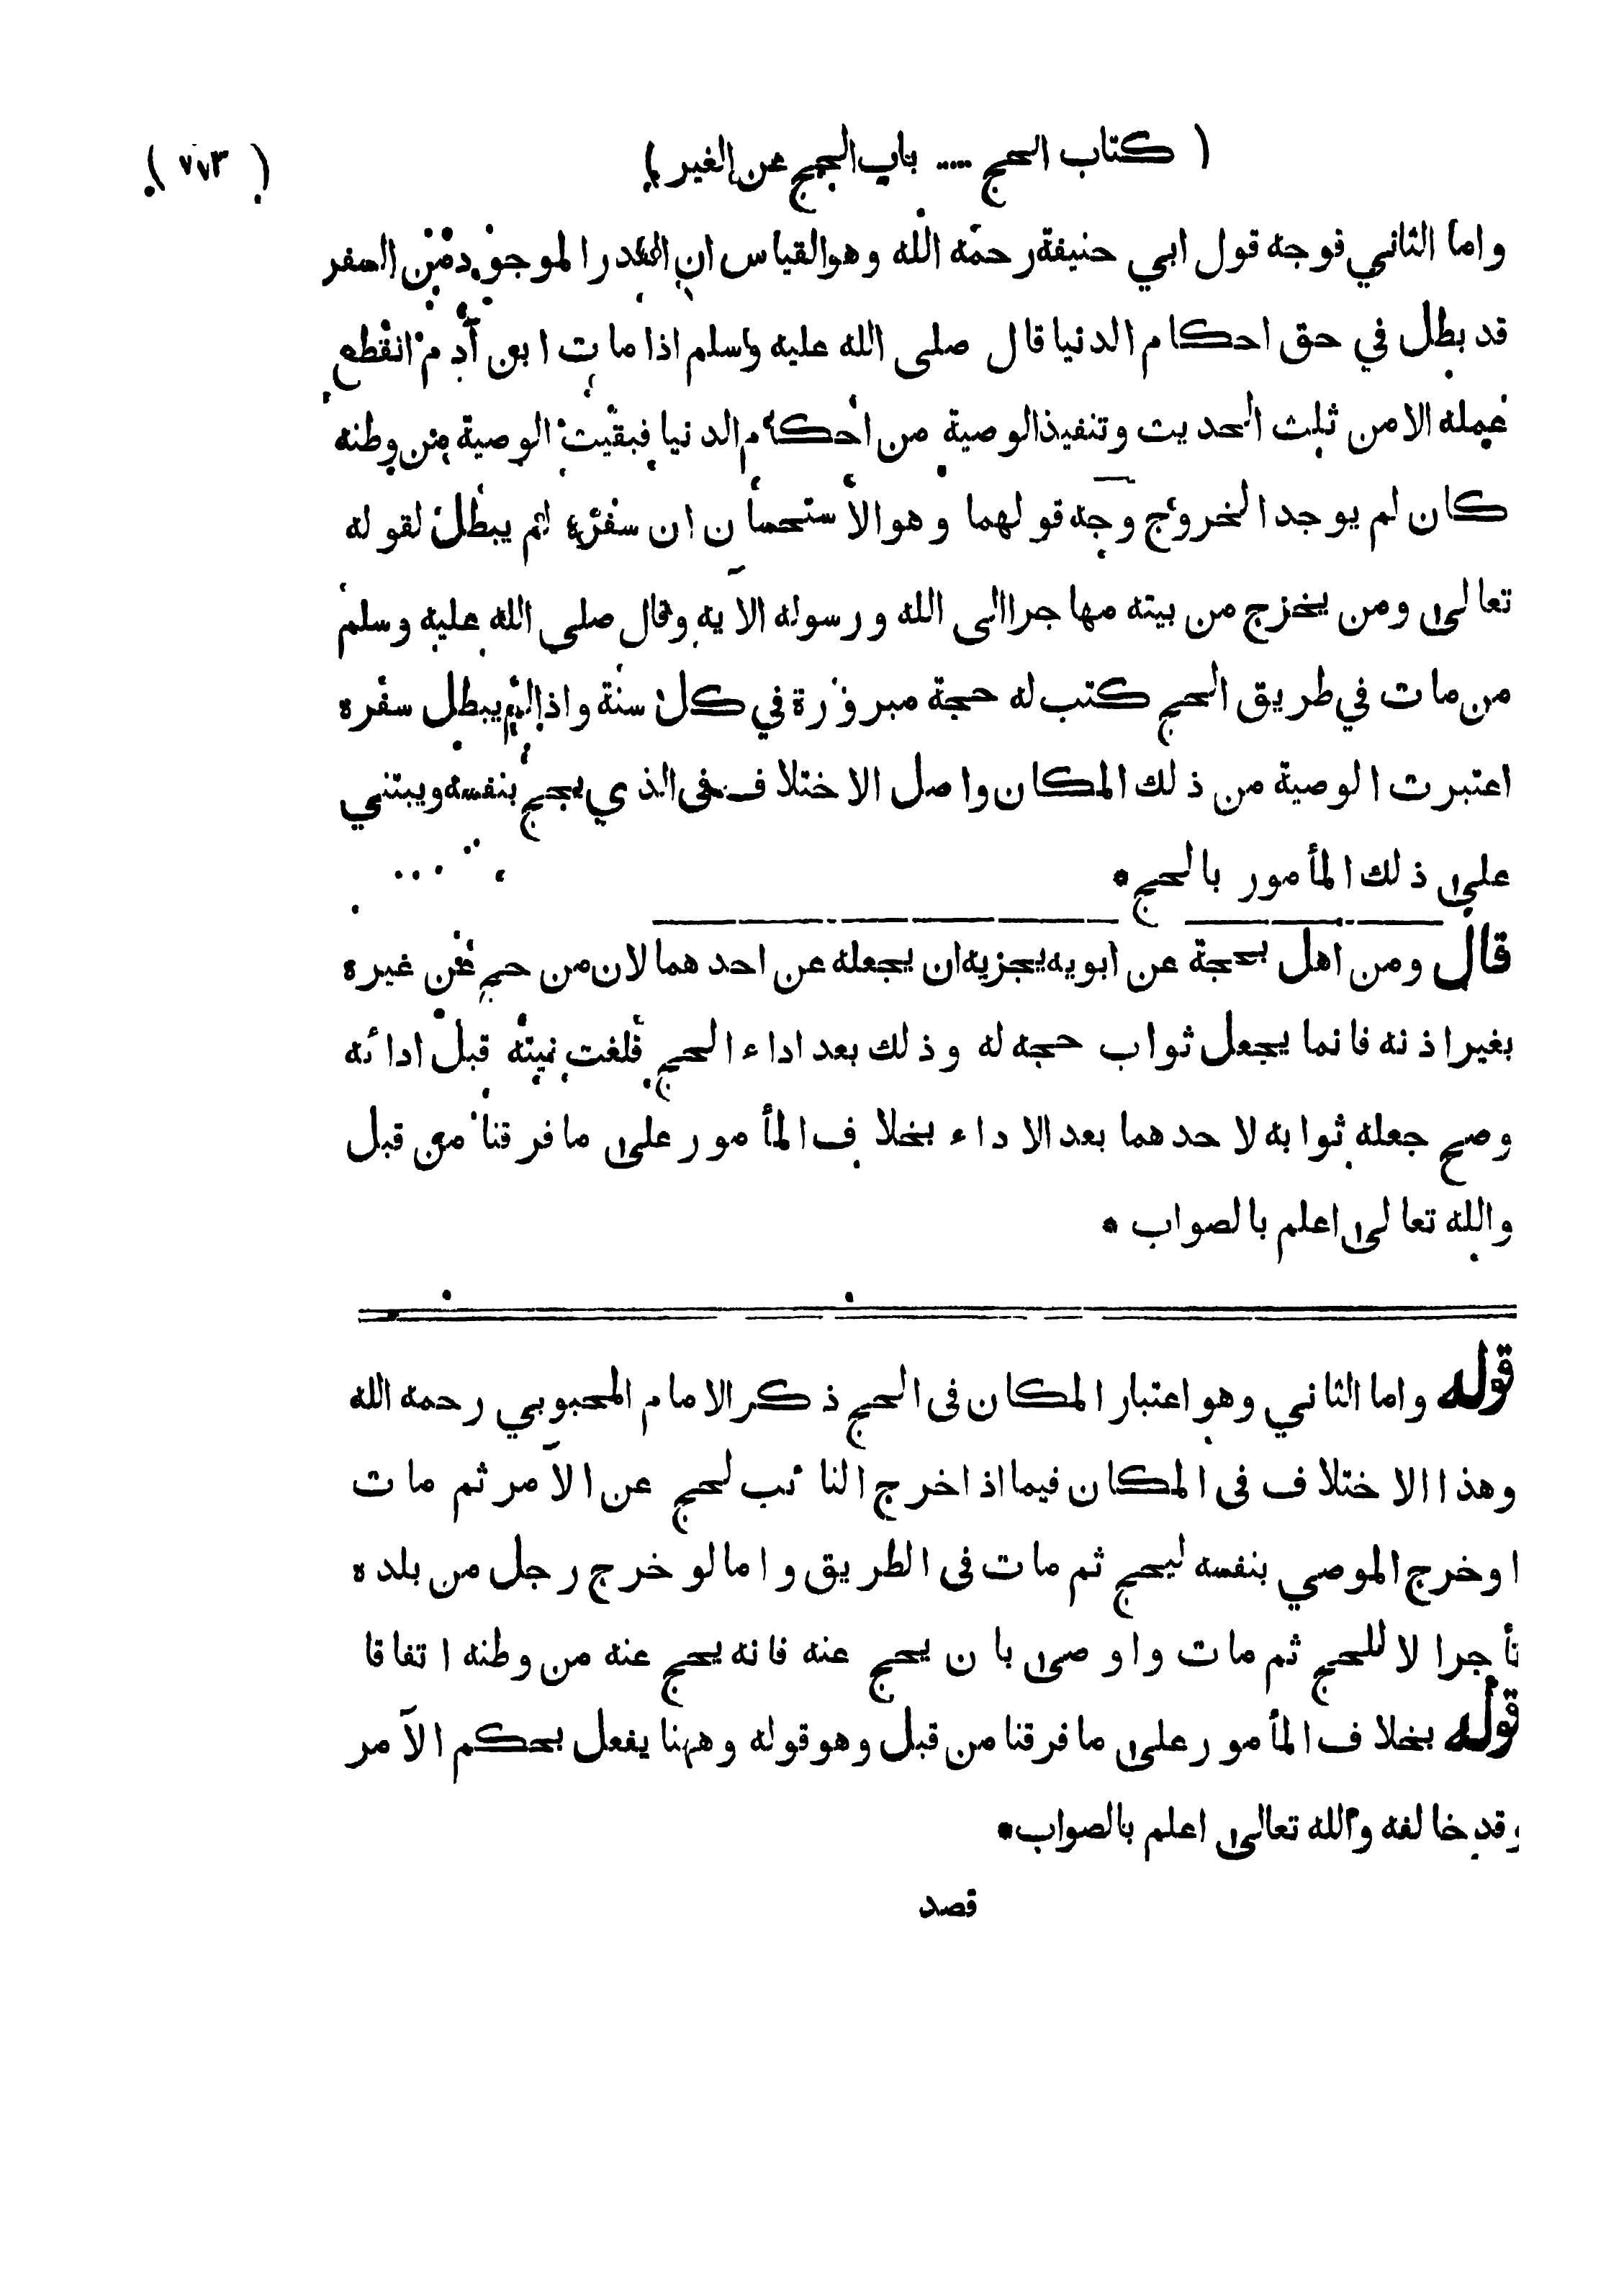 ( كتاب الحج ..... باب الحج عن الغير ) ( ٧٧٣ )
واما الثاني فوجه قول ابي حنيفة رحمه الله وهو القياس ان القدر الموجود من السفر
قد بطل في حق احكام الدنيا قال صلى الله عليه وسلم اذا مات ابن آدم انقطع
عمله الا من ثلث الحديث وتنفيذ الوصية من احكام الدنيا فبقيت الوصية من وطنه
كان لم يوجد الخروج وجه قولهما وهو الاستحسان ان سفره لم يبطل لقوله
تعالى ومن يخرج من بيته مهاجرا الى الله ورسوله الآيه وقال صلى الله عليه وسلم
من مات في طريق الحج كتب له حجة مبرورة في كل سنة واذا لم يبطل سفره
اعتبرت الوصية من ذلك المكان واصل الاختلاف فى الذي يحج بنفسه ويبتني
على ذلك المأمور بالحج *
قال ومن اهل بحجة عن ابويه يجزيه ان يجعله عن احدهما لان من حج عن غيره
بغير اذنه فانما يجعل ثواب حجه له وذلك بعد اداء الحج فلغت نيته قبل ادائه
وصح جعله ثوابه لاحدهما بعد الاداء بخلاف المأمور على ما فرقنا من قبل
والله تعالى اعلم بالصواب *
قوله واما الثاني وهو اعتبار المكان فى الحج ذكر الامام المحبوبي رحمه الله
وهذا الاختلاف فى المكان فيما اذا خرج النائب لحج عن الآمر ثم مات
او خرج الموصي بنفسه ليحج ثم مات فى الطريق واما لو خرج رجل من بلده
تأجرا لا للحج ثم مات واوصى بان يحج عنه فانه يحج عنه من وطنه اتفاقا
قوله بخلاف المأمور على ما فرقنا من قبل وهو قوله وههنا يفعل بحكم الآمر
وقد خالفه والله تعالى اعلم بالصواب *
قصد